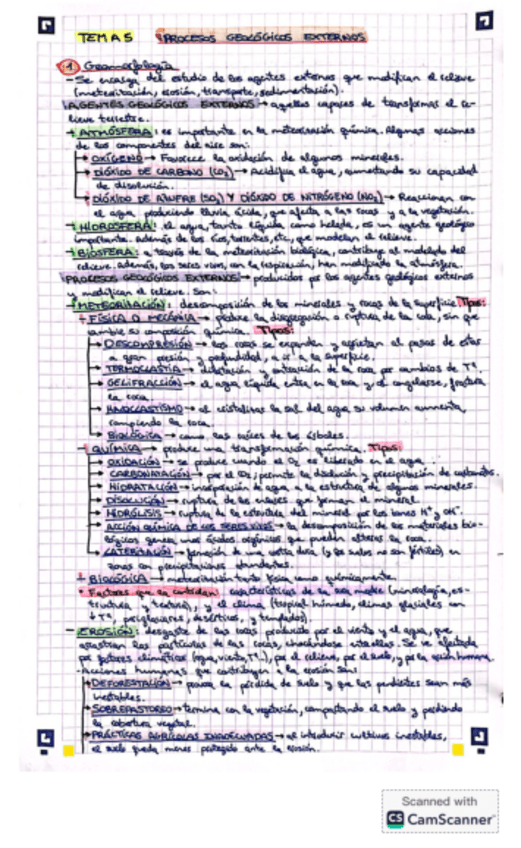 TEMA 5 PROCESOS GEOLÓGICOS EXTERNOS
1 Geomorfología
- Se encarga del estudio de los agentes externos que modifican el relieve
(meteorización, erosión, transporte, sedimentación).
AGENTES GEOLÓGICOS EXTERNOS → aquellos capaces de transformar el re-
lieve terrestre.
+ ATMÓSFERA: es importante en la meteorización química. Algunas acciones
de los componentes del aire son:
→ OXÍGENO → Favorece la oxidación de algunos minerales.
→ DIÓXIDO DE CARBONO (CO2) → Acidifica el agua, aumentando su capacidad
de disolución.
→ DIÓXIDO DE AZUFRE (SO2) Y DIÓXIDO DE NITRÓGENO (NO2) → Reaccionan con
el agua produciendo lluvia ácida, que afecta a las rocas y a la vegetación.
- HIDROSFERA: el agua, tanto líquida como helada, es un agente geológico
importante. Además de los ríos, torrentes, etc, que modelan el relieve.
- BIOSFERA: a través de la meteorización biológica, contribuye al modelado del
relieve. Además, los seres vivos, con la respiración, han modificado la atmósfera.
PROCESOS GEOLÓGICOS EXTERNOS → producidos por los agentes geológicos externos
y modifican el relieve son:
- METEORIZACIÓN: descomposición de los minerales y rocas de la superficie. Tipos:
+ FÍSICA O MECÁNICA → produce la disgregación o ruptura de la roca, sin que
cambie su composición química. Tipos:
→ DESCOMPRESIÓN → las rocas se expanden y agrietan al pasar de estar
a gran presión y profundidad, a ir a la superficie.
→ TERMOCLASTIA → dilatación y contracción de la roca por cambios de Tª.
→ GELIFRACCIÓN → el agua líquida entra en la roca y al congelarse, fractura
la roca.
→ HALOCLASTISMO → al cristalizar la sal del agua su volumen aumenta,
rompiendo la roca.
→ BIOLÓGICA → como las raíces de los árboles.
- QUÍMICA → produce una transformación química. Tipos:
→ OXIDACIÓN → se produce cuando el O2 es liberado en el agua.
→ CARBONATACIÓN → por el CO2; permite la disolución y precipitación de carbonatos.
→ HIDRATACIÓN → incorporación de agua a la estructura de algunos minerales.
→ DISOLUCIÓN → ruptura de los enlaces que forman el mineral.
→ HIDRÓLISIS → ruptura de la estructura del mineral por los iones H+ y OH-.
→ ACCIÓN QUÍMICA DE LOS SERES VIVOS → la descomposición de los materiales bio-
lógicos genera unos ácidos orgánicos que pueden alterar la roca.
→ formación de una costra dura (y que suelos no son fértiles) en
zonas con precipitaciones abundantes.
+ BIOLÓGICA → meteorización tanto física como químicamente.
• Factores que la controlan: características de la roca madre (mineralogía, es-
tructura y textura), y el clima (tropical húmedo, climas glaciales con
↓Tª, periglaciares, desérticos, y templados)
- EROSIÓN: desgaste de las rocas producido por el viento y el agua, que
arrastran las partículas de las rocas, chocándose entre ellas. Se ve afectada
por factores climáticos (agua, viento, Tª...), por el relieve, por el suelo, y por la acción humana.
- Acciones humanas que contribuyen a la erosión son:
→ DEFORESTACIÓN → provoca la pérdida de suelo y que las pendientes sean más
inestables.
→ SOBREPASTOREO → termina con la vegetación, compactando el suelo y perdiendo
la cobertura vegetal.
→ PRÁCTICAS AGRÍCOLAS INADECUADAS → al introducir cultivos inestables,
el suelo queda menos protegido ante la erosión.
Scanned with
CS CamScanner